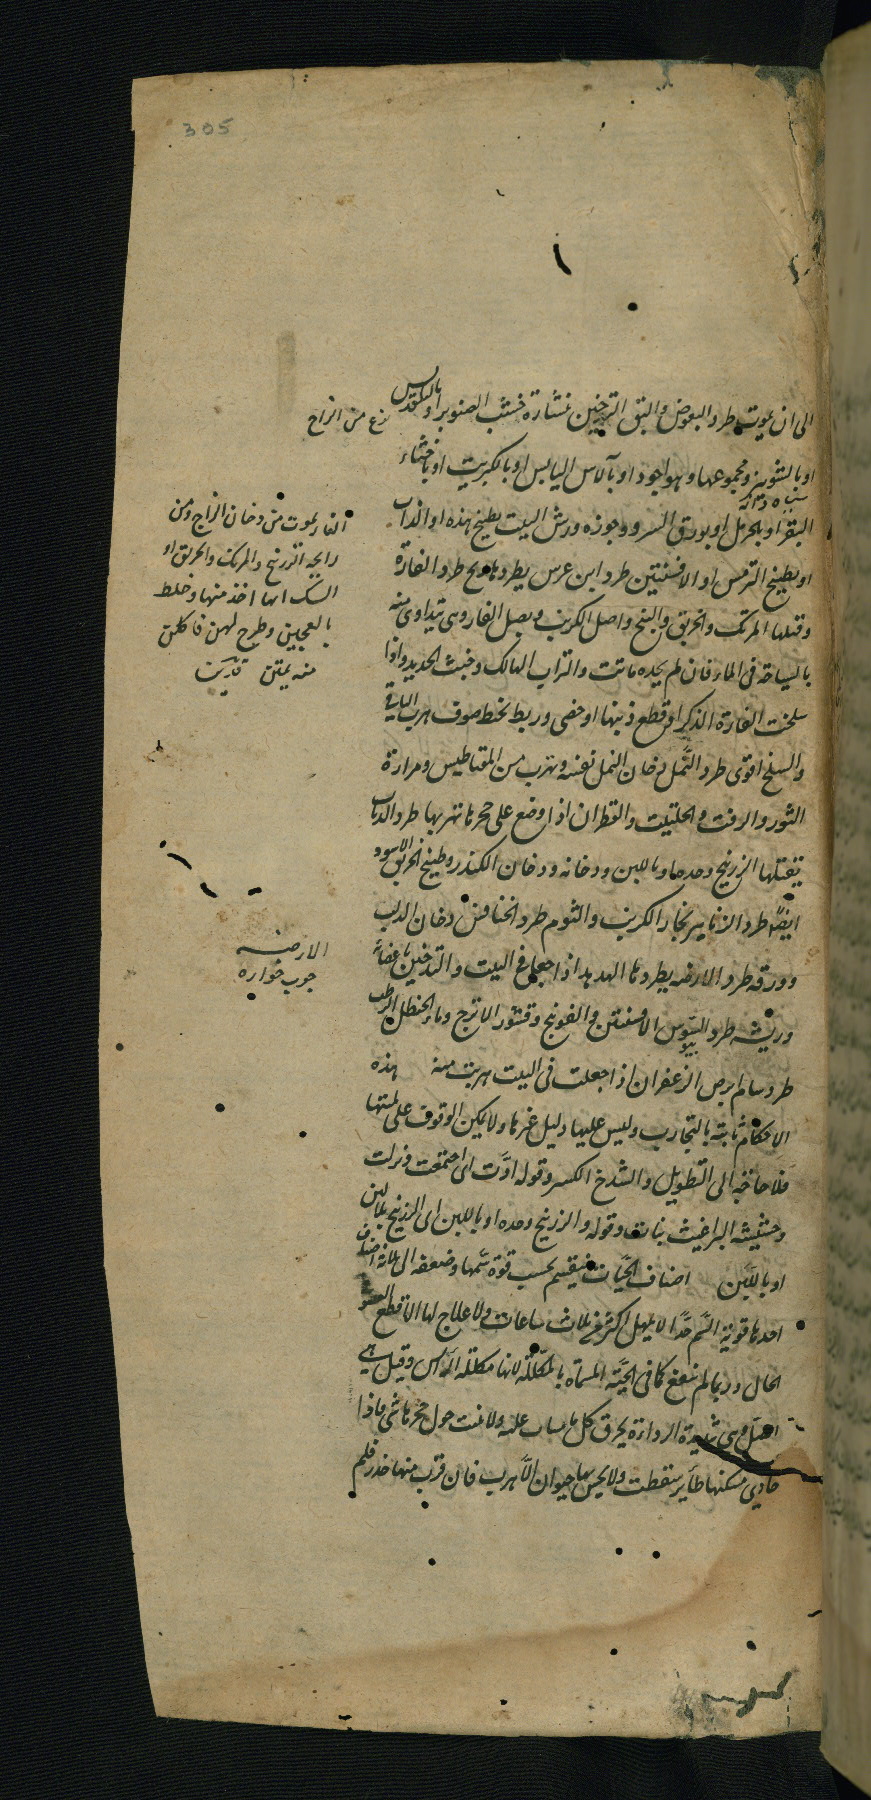 305
الى ان يموت طرد البعوض والبق التدخين بنشارة خشب الصنوبر او بالقلقديس
نوع من الزاج
او بالشونيز ومجموعها وهو اجود او بالآس اليابس او بالكبريت او باخثاء
البقر او بالحرمل او بورق السرو وجوزه ورش البيت بطبيخ هذه او السذاب
او بطبيخ الترمس او الافسنتين طرد ابن عرس يطرده ريح طرد الفارة
وقتلها المرتك والخربق والبنج واصل الكرنب وبصل الفار وهى تتداوى منه
بالسباحة فى الماء فان لم يجده ماتت والتراب الهالك وخبث الحديد واذا
سلخت الفارة الذكر او قطع ذنبها او خصى وربط بخيط صوف هرب الباقى
والسلخ اقوى طرد النمل دخان النمل نفسه ويهرب من المقناطيس ومرارة
الثور والزفت والحلتيت والقطران اذا وضع على حجرها تهربها طرد الذباب
يقتلها الزرنيخ وحده او باللبن ودخانه ودخان الكندر وطبيخ الخربق الاسود
ايضا طرد الزنابير بخار الكبريت والثوم طرد الخنافس دخان الدلب
وورقه طرد الارضه يطردها الهدهد اذا جعل فى البيت والتدخين باعضائه
وريشه طرد السوس الافسنتين والفوتنج وقشور الاترج وماء الحنظل الرطب
طرد سام ابرص الزعفران اذا جعلت فى البيت هربت منه هذه
الاحكام ثابتة بالتجارب وليس عليها دليل غيرها ولا يمكن الوقوف على لميتها
فلا حاجة الى التطويل والشدخ الكسر وقوله اوَّت اى اجتمعت ونزلت
وحشيشه البراغيث نبات وقوله والزرنيخ وحده او باللبن اى الزرنيخ بلا لبن
او باللبن اصناف الحيات ينقسم بحسب قوة سمها وضعفه الى ثلاثة اصناف
احدها قوية السم جدا لا يمهل اكثر من ثلاث ساعات ولا علاج لها الا قطع العضو
الحال وربما لم ينفع كما فى الحية المسماة بالمكللة لانها مكللة الراس وقيل هى
وهى شديدة الرداءة يحرق كل ما ينساب عليه ولا ينبت حول حجرها شى واذا
حاذى مسكنها طاير سقطت ولا يحس بها حيوان الا هرب فان قرب منها خدر فلم
الفار يموت من دخان الزاج ومن
رايحه الزرنيخ والمرتك والخربق او
السك ايها اخذ منها وخلط
بالعجين وطرح لهن فاكلن
منه يمتن
الارضه
چوب خواره